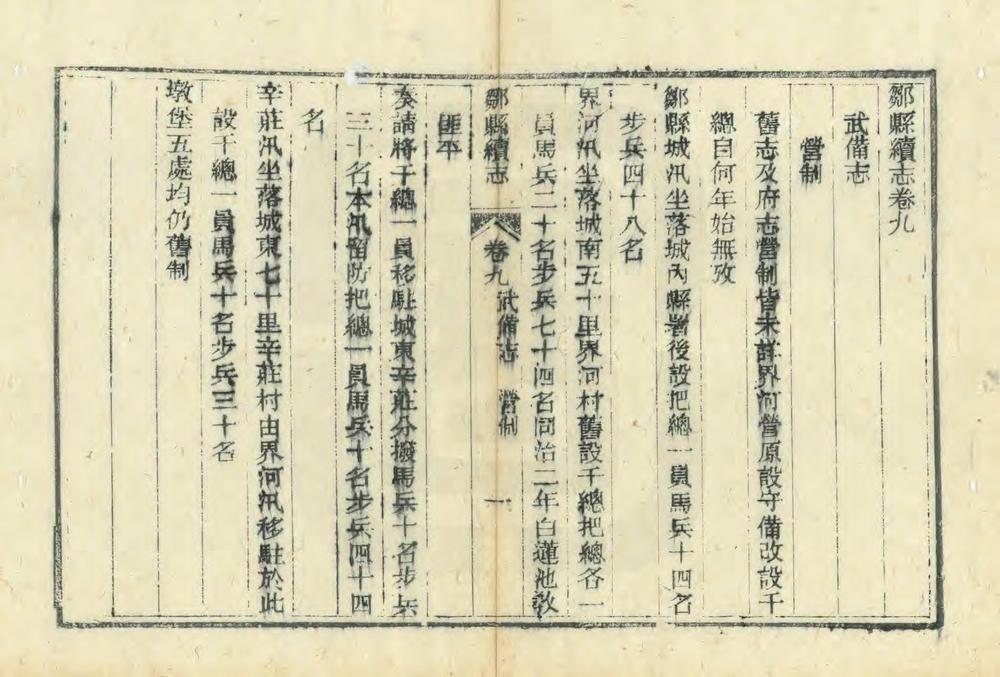 鄒縣續志卷九
武備志
營制
舊志及府志營制皆未詳界河營原設守備改設千
總自何年始無攷
鄒縣城汛坐落城內縣署後設把總一員馬兵十四名
步兵四十八名
界河汛坐落城南五十里界河村舊設千總把總各一
員馬兵二十名步兵七十四名同治二年白蓮池敎
鄒縣續志 卷九 武備志 營制 一
匪平
奏請將千總一員移駐城東辛莊分撥馬兵十名步兵
三十名本汛留防把總一員馬兵十名步兵四十四
名
辛莊汛坐落城東七十里辛莊村由界河汛移駐於此
設千總一員馬兵十名步兵三十名
墩堡五處均仍舊制